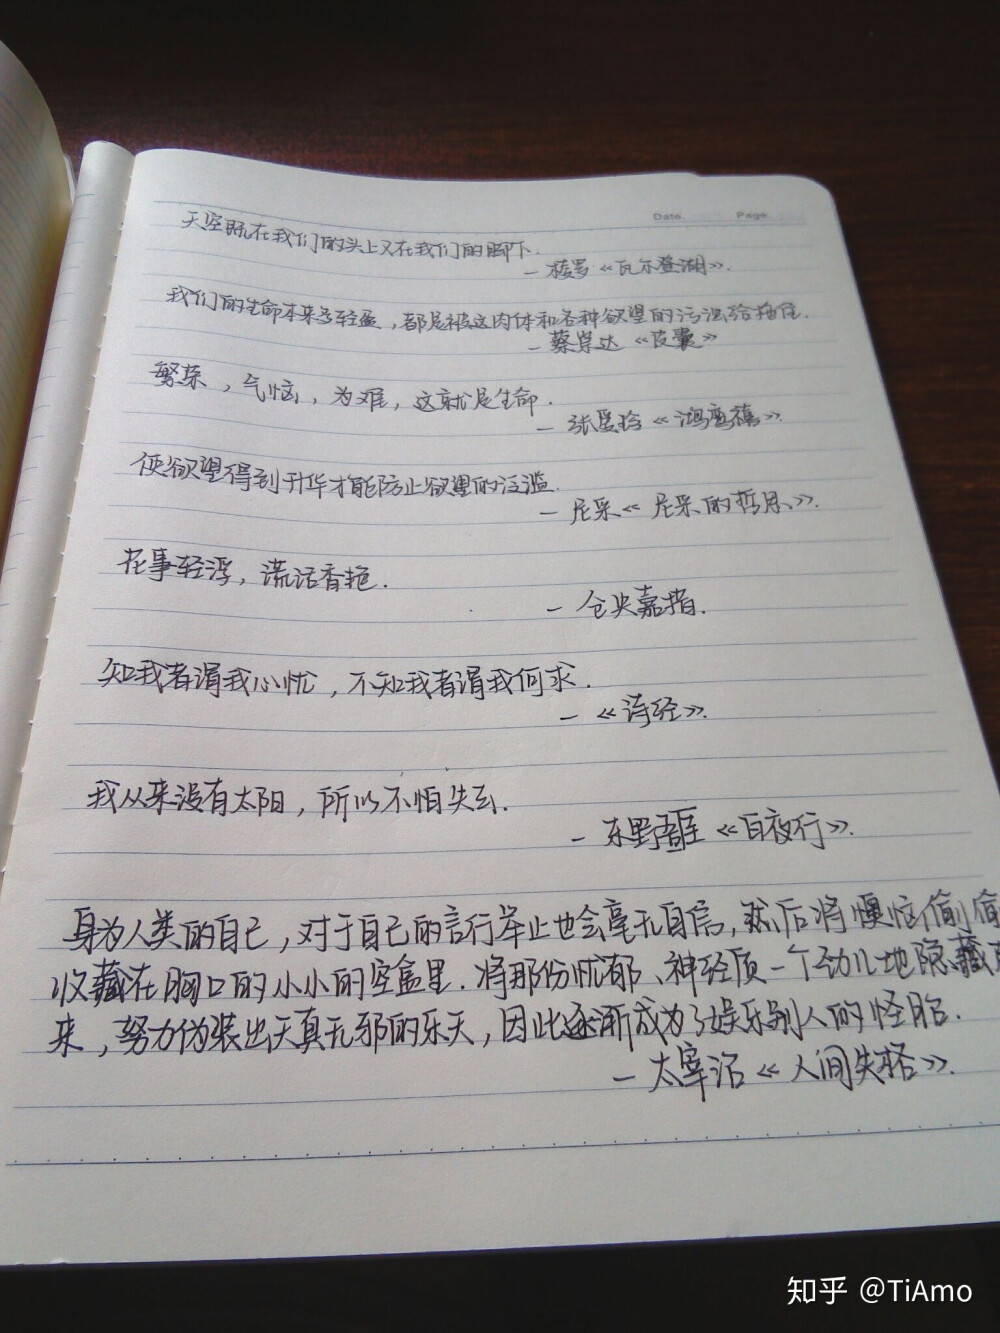 Date. Page.
天空既在我们的头上又在我们的脚下.
— 梭罗《瓦尔登湖》.
我们的生命本来多轻盈,都是被这肉体和各种欲望的污浊给拖住.
— 蔡崇达《皮囊》
繁荣,气恼,为难,这就是生命.
— 张爱玲《鸿鸾禧》.
使欲望得到升华才能防止欲望的泛滥.
— 尼采《尼采的哲思》.
花事轻浮,谎话香艳.
— 仓央嘉措.
知我者谓我心忧,不知我者谓我何求.
— 《诗经》.
我从来没有太阳,所以不怕失去.
— 东野圭吾《白夜行》.
身为人类的自己,对于自己的言行举止也会毫无自信,然后将懊恼偷偷
收藏在胸口的小小的空盒里.将那份忧郁、神经质一个劲儿地隐藏
来,努力伪装出天真无邪的乐天,因此逐渐成为了娱乐别人的怪胎.
— 太宰治《人间失格》.
知乎 @TiAmo